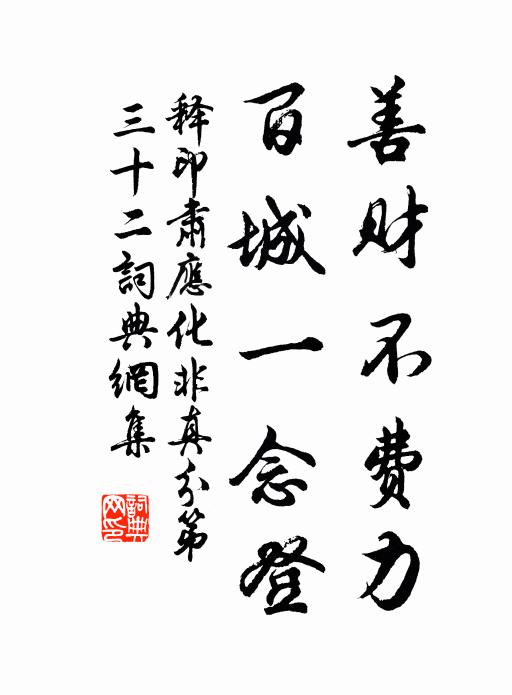 善财不费力
百城一念登
释印肃應化非真分第
三十二詞典網集
詞典
网印